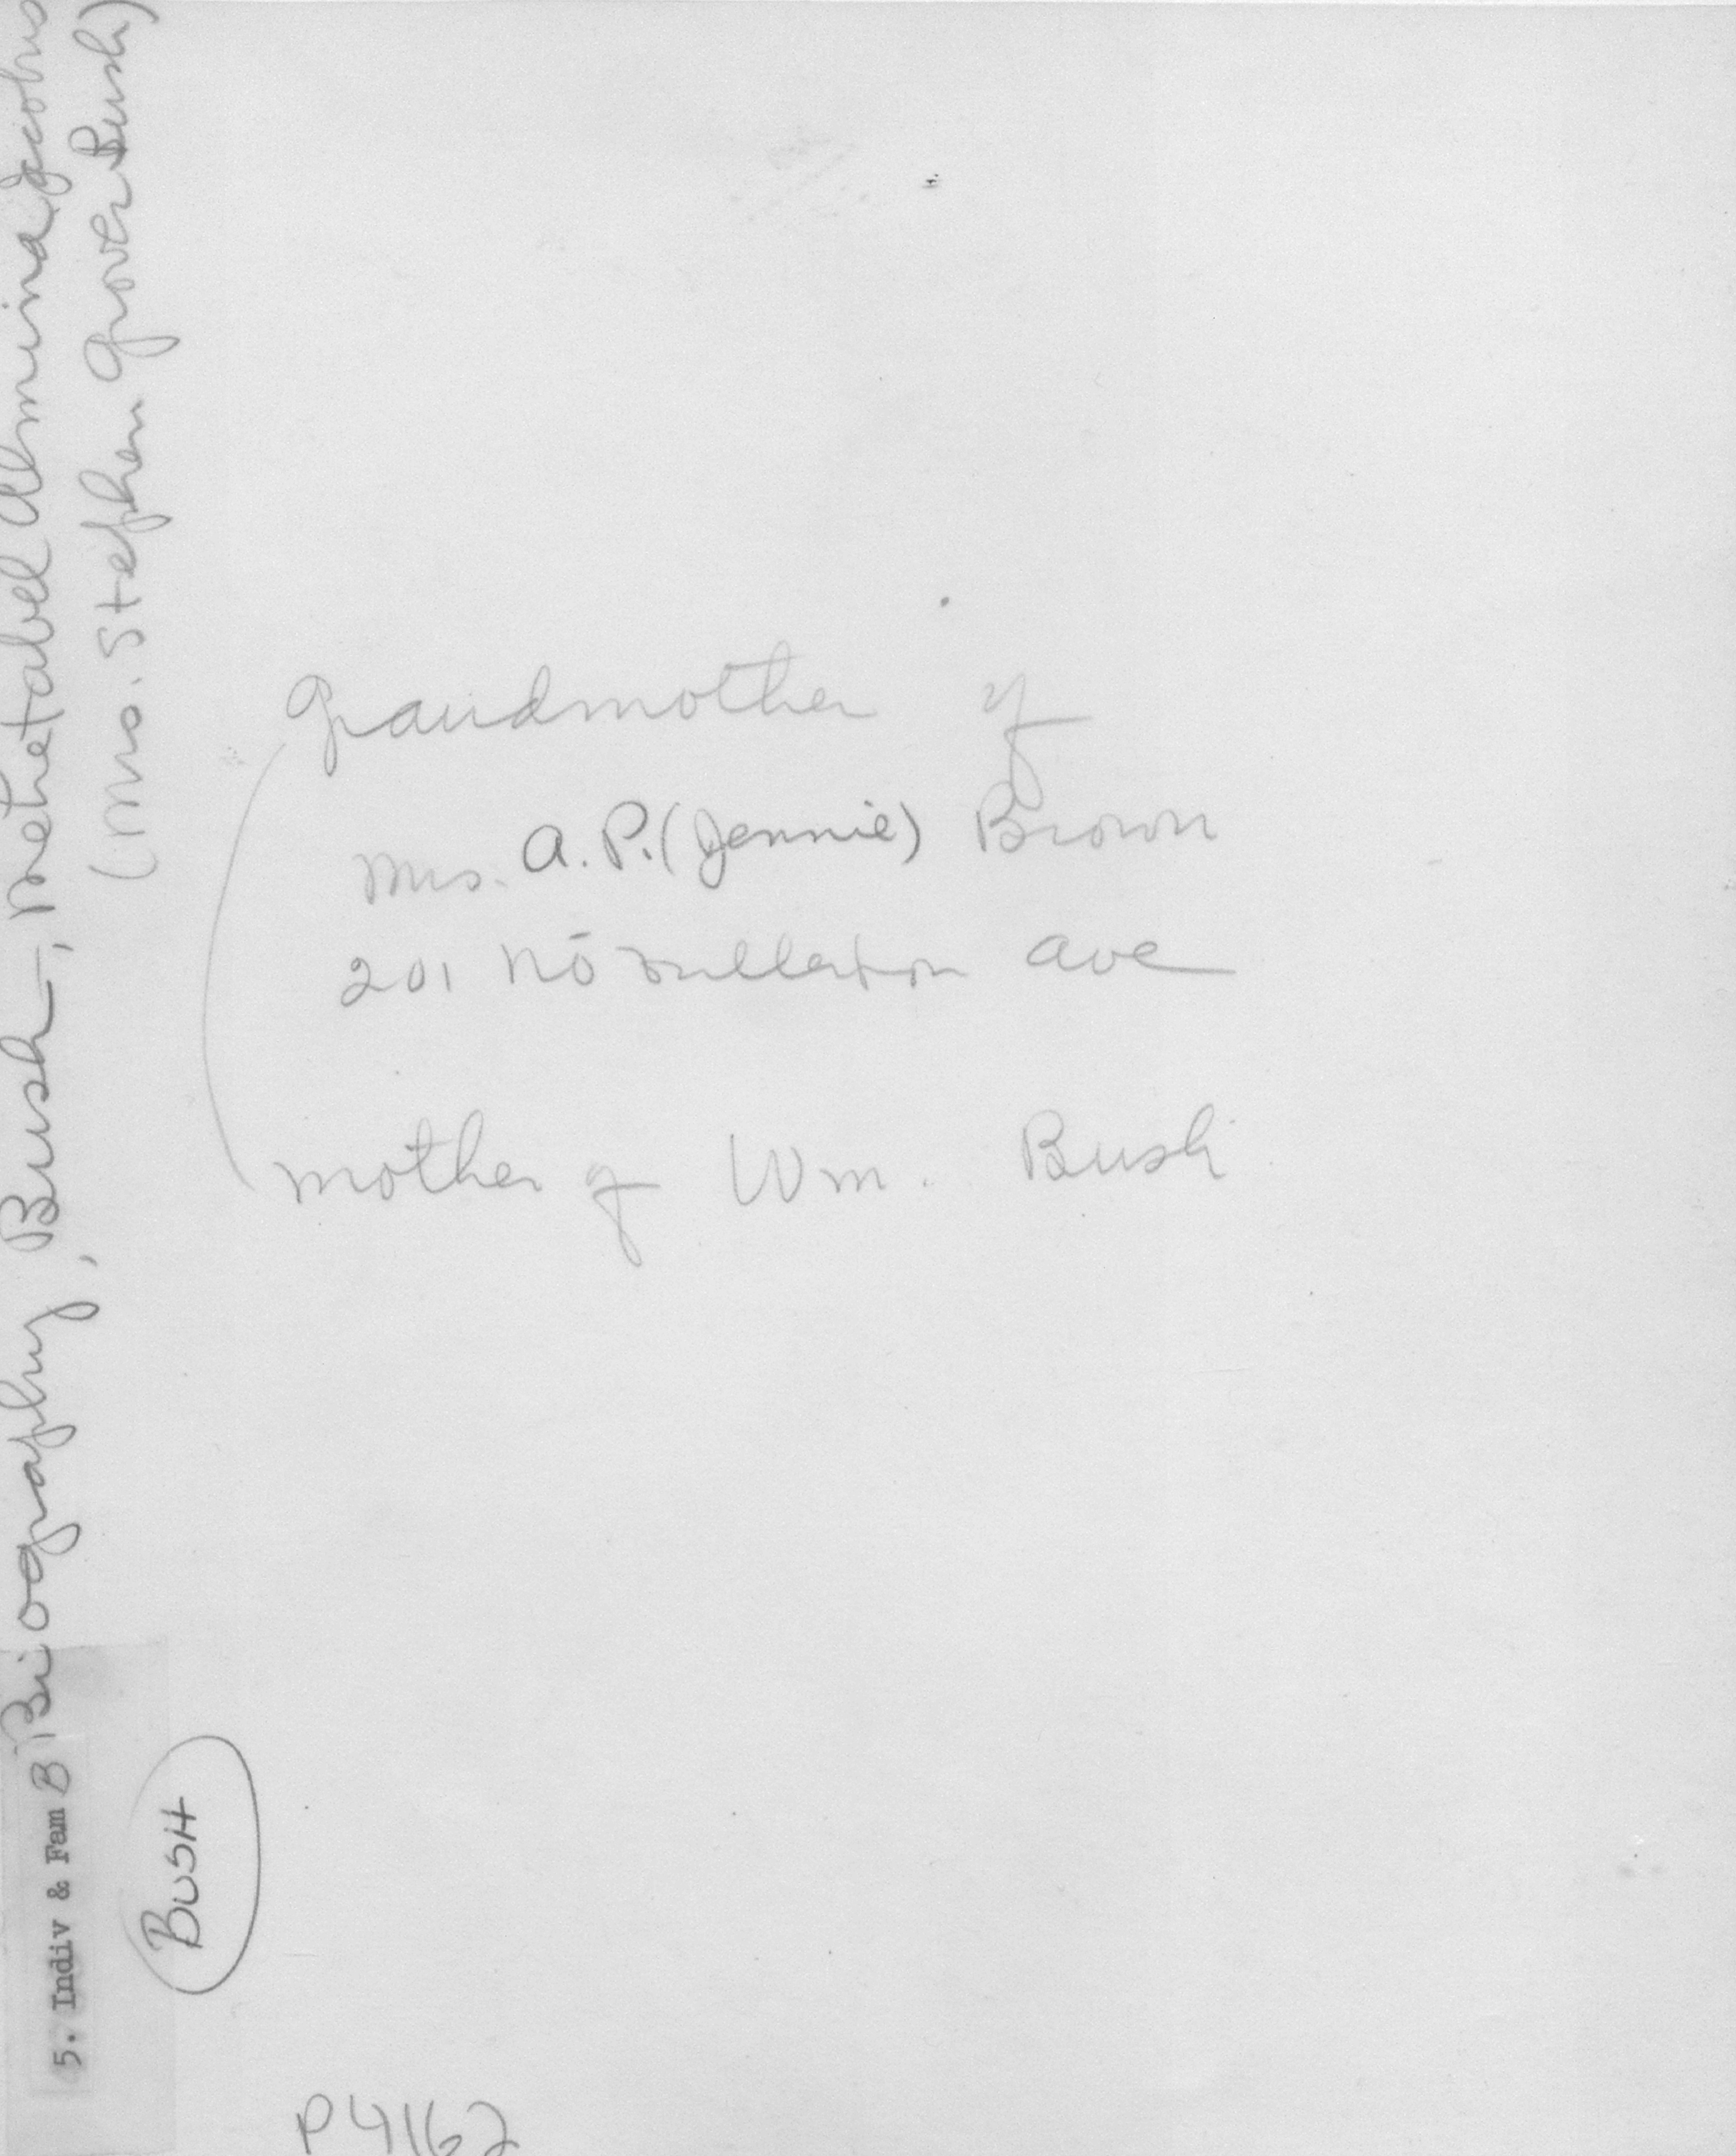 Biography, Bush, Mehetabel Almina Jacobus
(Mrs. Stephen Grover Bush)
Grandmother of
Mrs. A.P. (Jennie) Brown
201 No Fullerton Ave
Mother of Wm. Bush
5. Indiv & Fam B
BUSH
P4162